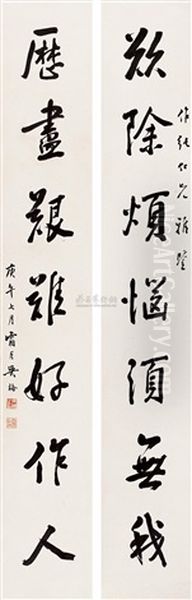 欲除煩惱須無我
作紉仁兄雅鑒
歷盡艱難好作人
庚午七月霜月